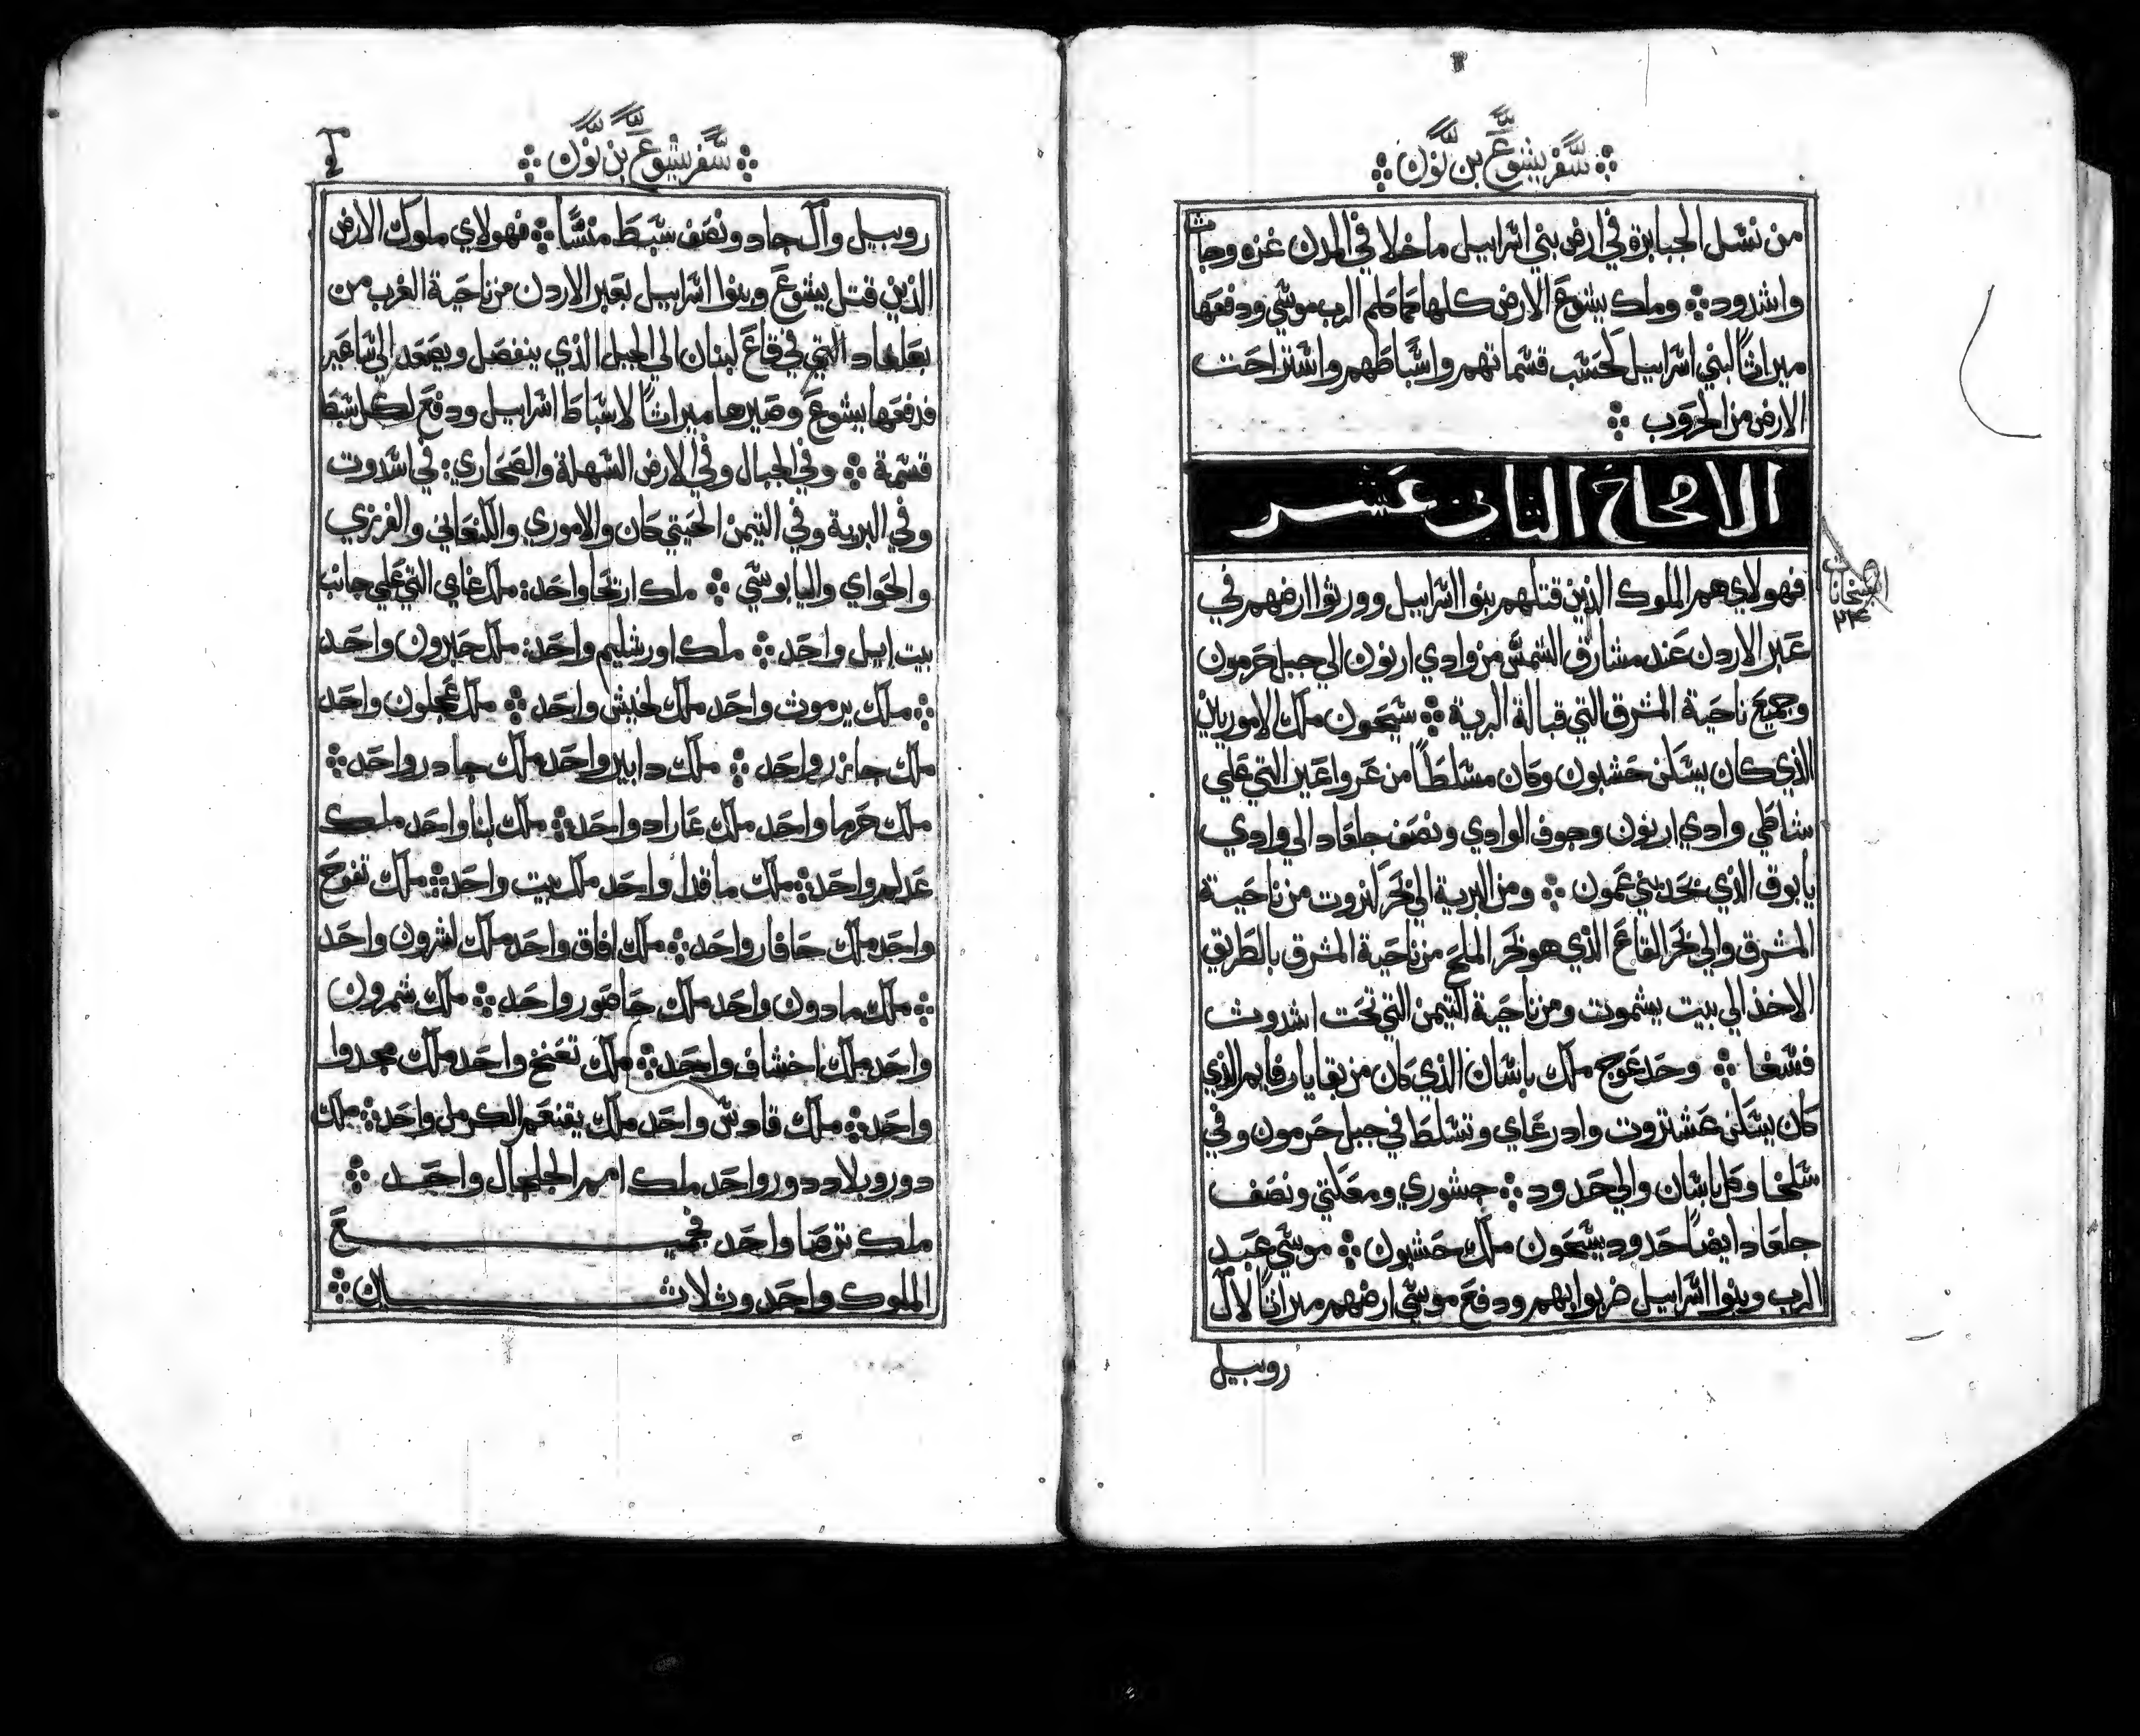 سفر يشوع بن نون
من نسل الجبابرة في ارض بني اسراييل ماخلا في المدن غزه وجاث
واشدود ⁘ وملك يشوع الارض كلها كما كلم الرب موسي ودفعها
ميراثًا لبني اسراييل كحسب قسماتهم واسباطهم واستراحت
الارض من الحروب ⁘
الاصحاح الثاني عشر
فهولاي هم الملوك الذين قتلهم بنوا اسراييل وورثوا ارضهم في
عبر الاردن عند مشارق الشمس من وادي ارنون الي جبل حرمون
وجميع ناحية المشرق التي قبالة البرية ⁘ سيحون ملك الاموريان
الذي كان يسكن حشبون وكان مسلطًا من عرواعير التي علي
شاطي وادي ارنون وجوف الوادي ونصف جلعاد الي وادي
يابوق الذي بحد بني عمون ⁘ ومن البرية الي بحر كنروت من ناحية
المشرق والي بحر القاع الذي هو بحر الملح من ناحية المشرق بالطريق
الاخذ الي بيت يشموت ومن ناحية التيمن التي تحت اشدوث
فسغا ⁘ وحد عوج ملك باسان الذي كان من بقايا رفايم الذي
كان يسكن عشتروت وادرعاي وتسلط في جبل حرمون وفي
سلخا وكل باسان والي حدود ⁘ جشوري ومعكتي ونصف
جلعاد ايضًا حدود سيحون ملك حشبون ⁘ موسي عبد
الرب وبنوا اسراييل ضربوا بهم ودفع موسي ارضهم ميراثًا لال
روبيل
سفر يشوع بن نون
روبيل وال جاد ونصف سبط منسا ⁘ فهولاي ملوك الارض
الذين قتل يشوع وبنوا اسراييل بعبر الاردن من ناحية الغرب من
بعلغاد التي في قاع لبنان الي الجبل الذي ينفصل ويصعد الي ساعير
فدفعها يشوع وصيرها ميراثًا لاسباط اسراييل ودفع لكل سبط
قسمة ⁘ وفي الجبال وفي الارض السهلة والصحاري: في اسدوت
وفي البرية وفي التيمن الحيتي كان والاموري والكنعاني والفرزي
والحواي واليابوسي ⁘ ملك اريحا واحد: ملك عاي التي علي جانب
بيت ايل واحد ⁘ ملك اورشليم واحد: ملك حبرون واحد
⁘ ملك يرموث واحد ملك لخيش واحد ⁘ ملك عجلون واحد
ملك جازر واحد ⁘ ملك دابير واحد ملك جادر واحد ⁘
ملك حرما واحد ملك عاراد واحد ⁘ ملك لبنا واحد ملك
عدلم واحد ⁘ ملك ماقدا واحد ملك بيت واحد ⁘ ملك تفوح
واحد ملك حافار واحد ⁘ ملك افاق واحد ملك لشرون واحد
⁘ ملك مادون واحد ملك حاصور واحد ⁘ ملك شمرون
واحد ملك اخشاف واحد ⁘ ملك تعنخ واحد ملك مجدوا
واحد ⁘ ملك قادس واحد ملك يقنعم الكرمل واحد ⁘ ملك
دور وبلاد دور واحد ملك امم الجلجال واحد ⁘
ملك ترصا واحد فجميع
الملوك واحد وثلاثان ⁘